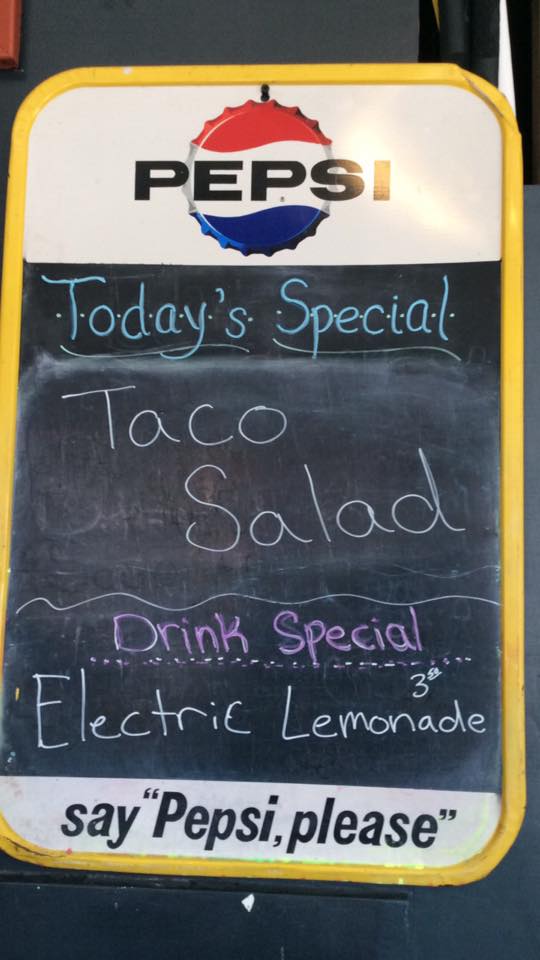 PEPSI
Today's Special
Taco
Salad
Drink Special
3⁵⁰
Electric Lemonade
say "Pepsi, please"